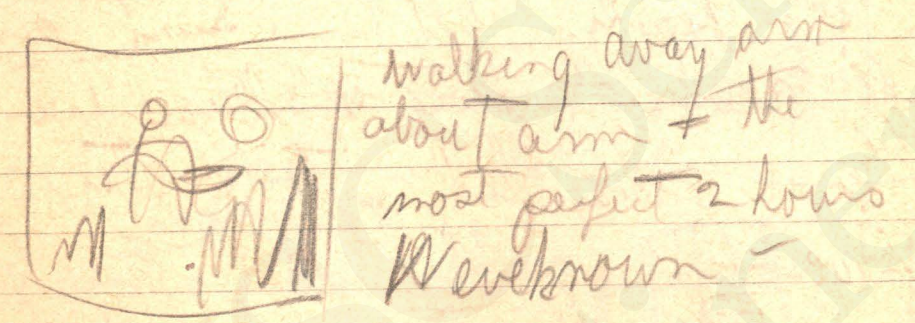 walking away arm
about arm + the
most perfect 2 hours
Weveknown –